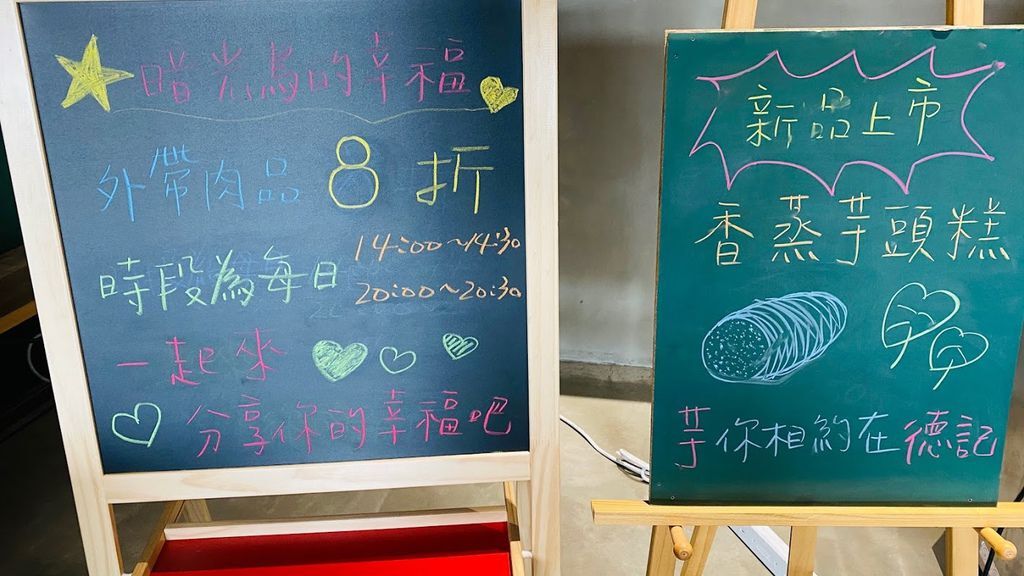 喵光鳥的幸福
外帶肉品 8折
時段為每日 14:00~14:30
20:00~20:30
一起來
分享你的幸福吧
新品上市
香蒸芋頭糕
芋你相約在德記